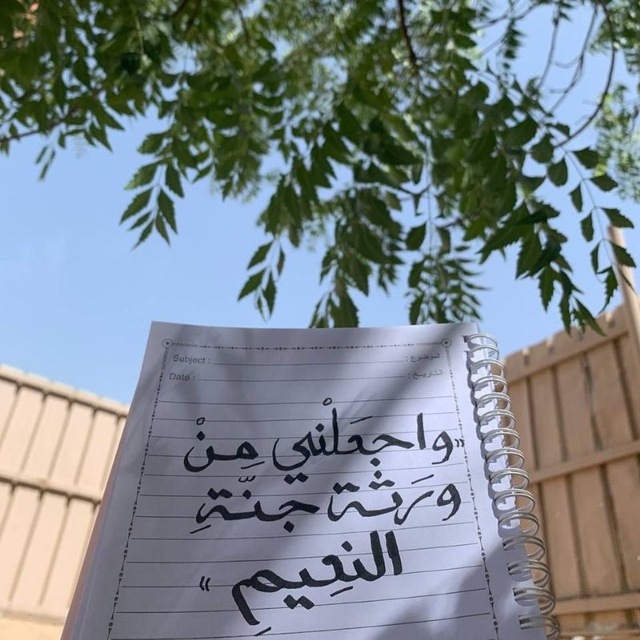 Subject : الموضوع :
Date : التاريخ :
"واجعَلْني مِنْ
ورَثة جنّةِ
النعِيمِ "